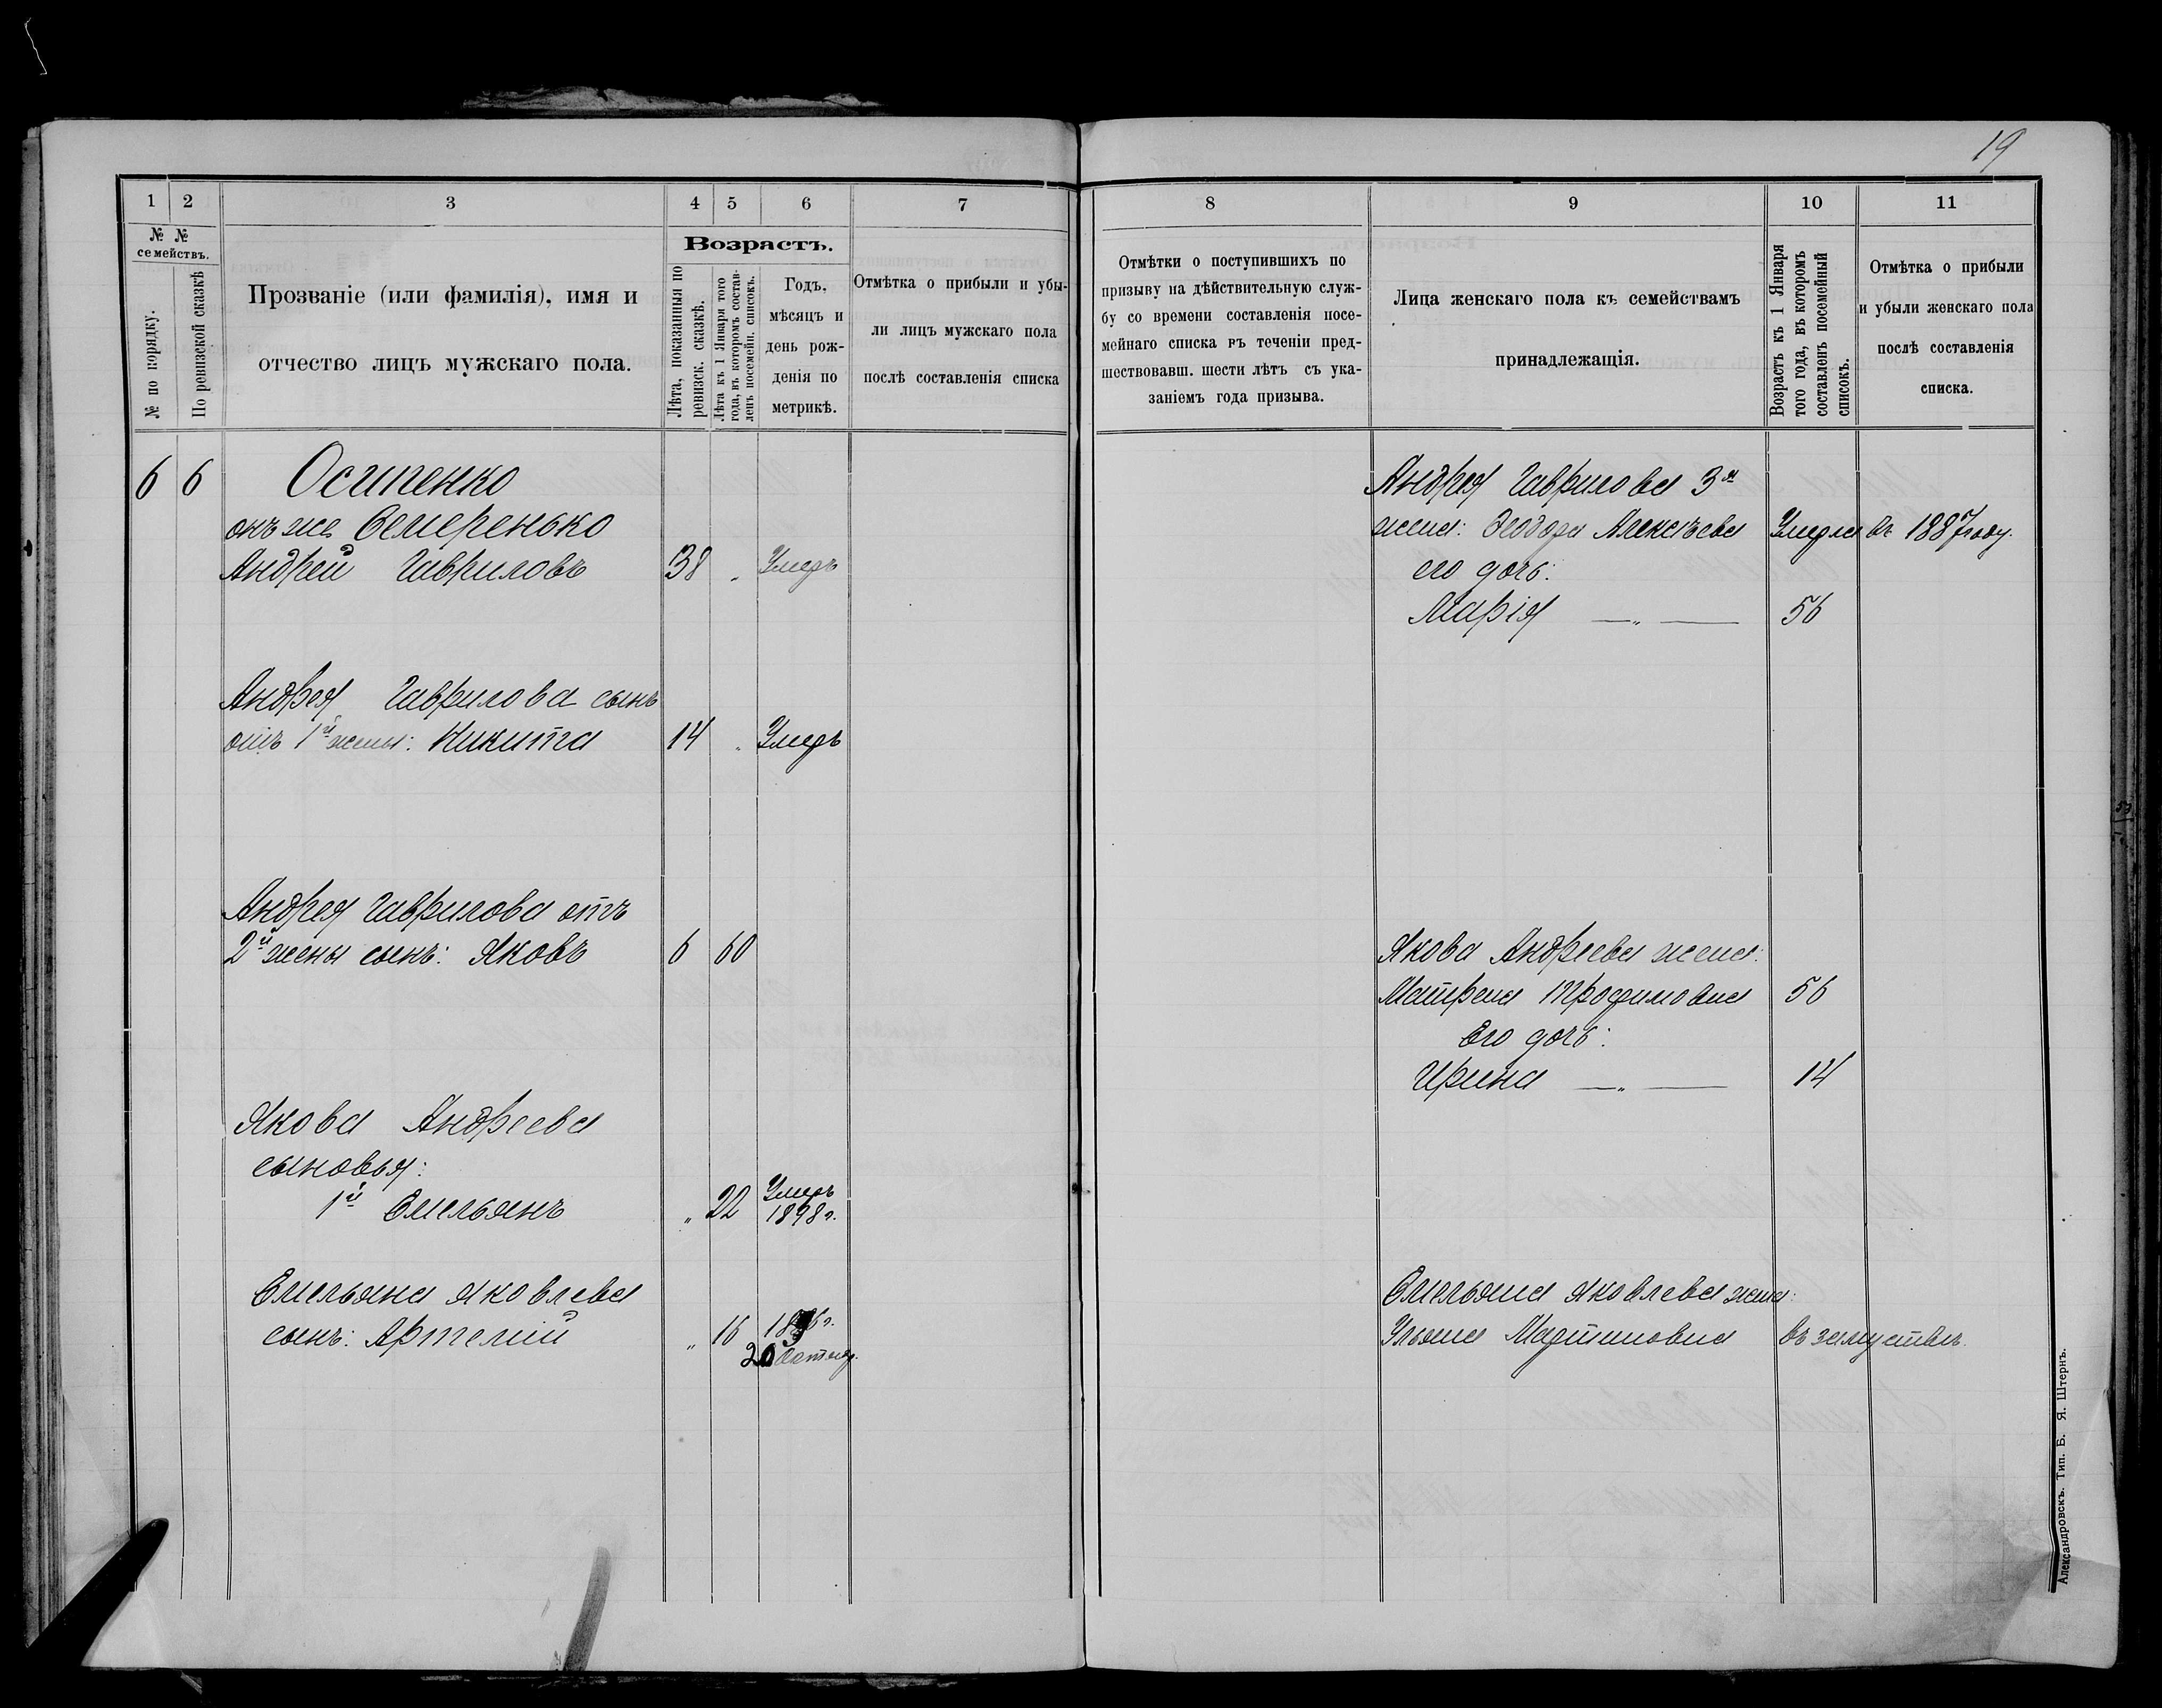 19
1 2 3 4 5 6 7
№ № семействъ.
№ по порядку.
По ревизской сказкѣ
Прозваніе (или фамилія), имя и
отчество лицъ мужскаго пола.
Возрастъ.
Лѣта, показанныя по
ревизск. сказкѣ.
Лѣта къ 1 Января того
года, въ которомъ состав-
ленъ посемейн. списокъ.
Годъ,
мѣсяцъ и
день рож-
денія по
метрикѣ.
Отмѣтка о прибыли и убы-
ли лицъ мужскаго пола
послѣ составленія списка
6 6 Осипенко
онъ же Семеренько
Андрей Гавриловъ 38 „ Умеръ
Андрея Гаврилова сынъ
отъ 1й жены: Никита 14 „ Умеръ
Андрея Гаврилова отъ
2й жены сынъ: Яковъ 6 60
Якова Андреева
сыновья:
1й Емельянъ „ 22 Умеръ
1898 г.
Емельяна Яковлева
сынъ: Артемій „ 16
20 Октябр.
8 9 10 11
Отмѣтки о поступившихъ по
призыву на дѣйствительную служ-
бу со времени составленія посе-
мейнаго списка въ теченіи пред-
шествовавш. шести лѣтъ съ ука-
заніемъ года призыва.
Лица женскаго пола къ семействамъ
принадлежащія.
Возрастъ къ 1 Января
того года, въ которомъ
составленъ посемейный
списокъ.
Отмѣтка о прибыли
и убыли женскаго пола
послѣ составленія
списка.
Андрея Гаврилова 3я
жена: Феодора Алексѣева Умерла въ 1887 году.
его дочь:
Марія — „ — 56
Якова Андреева жена:
Матрена Трофимовна 56
Его дочь:
Ирина — „ — 14
Емельяна Яковлева жена:
Ульяна Мартиновна въ замуствѣ.
Александровскъ. Тип. Б. Я. Штернъ.